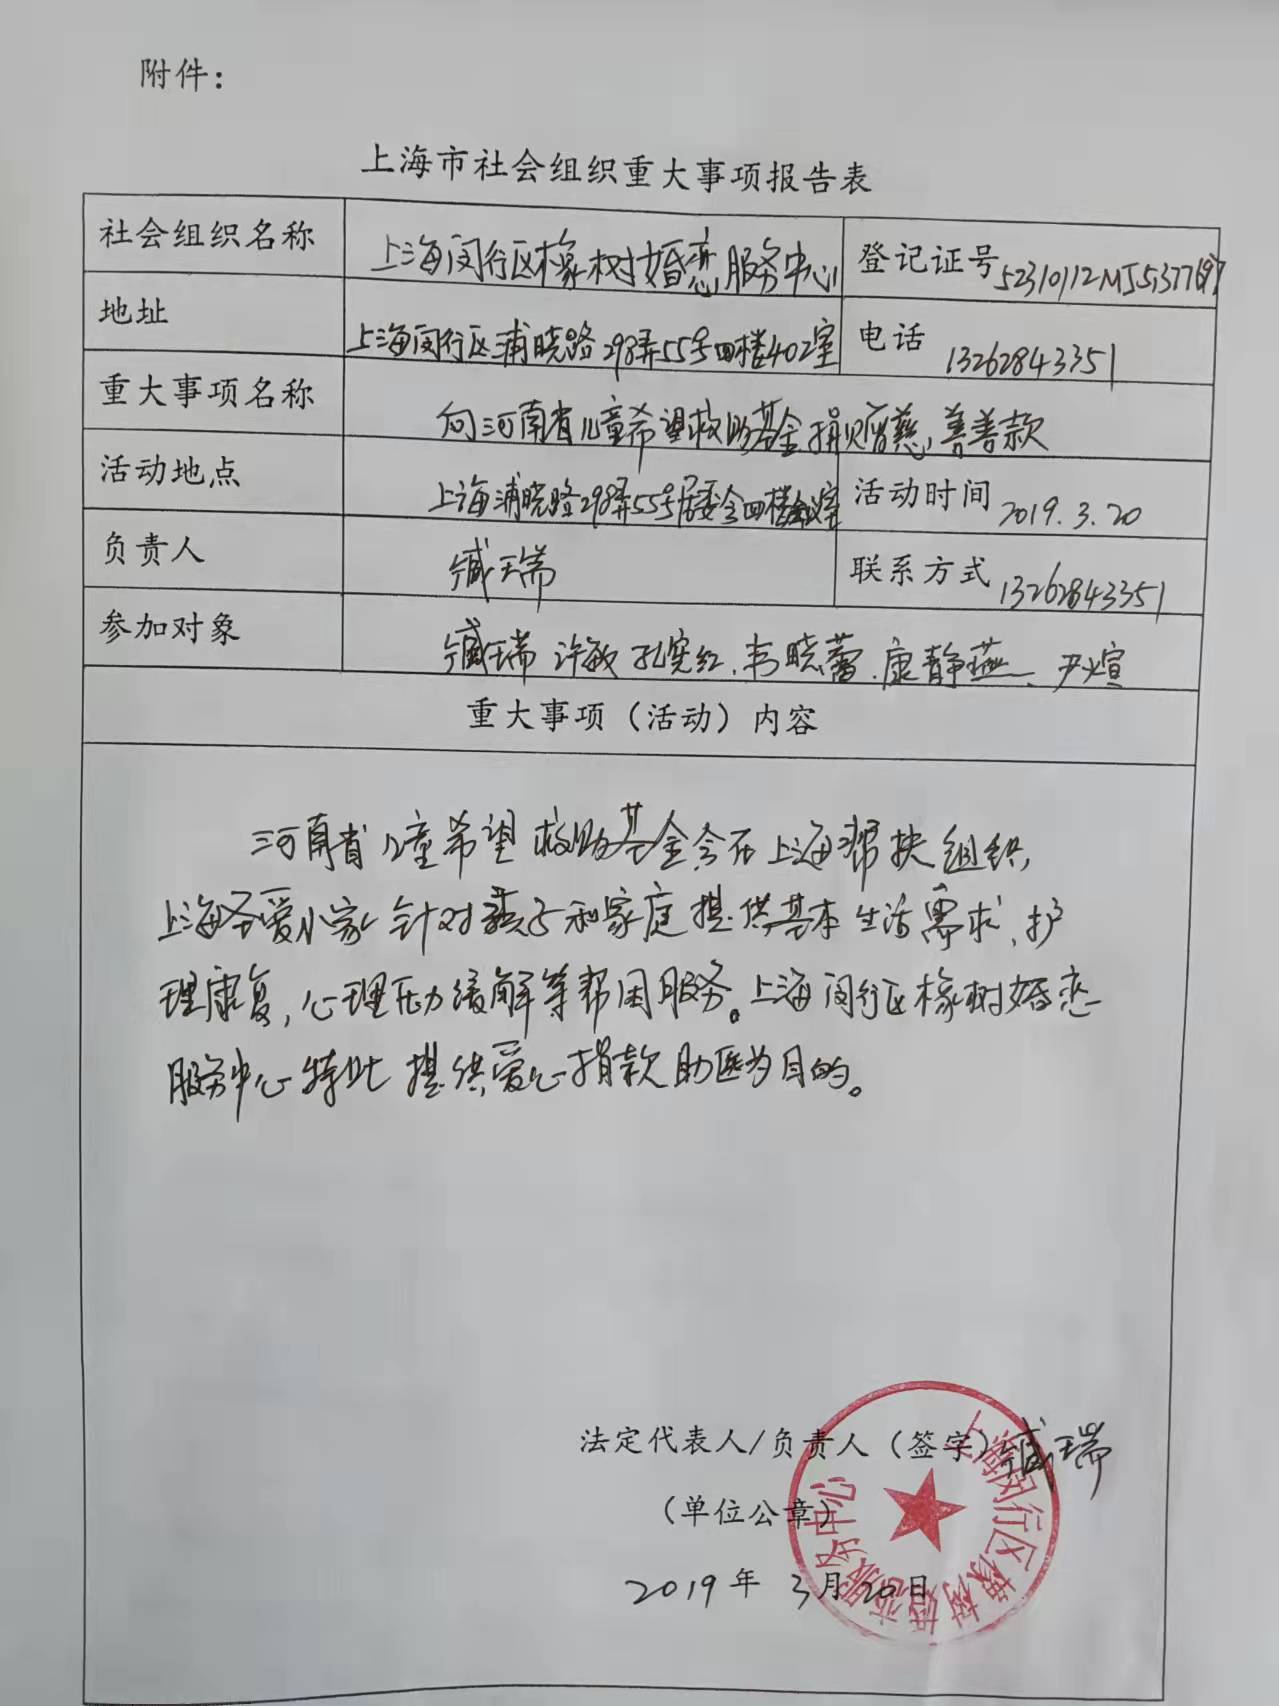 附件：
上海市社会组织重大事项报告表
社会组织名称 上海闵行区橡树婚恋服务中心 登记证号
地址 上海闵行区浦晓路298弄55号四楼402室 电话 13262843351
重大事项名称 向河南省儿童希望救助基金捐赠慈善善款
活动地点 上海浦晓路298弄55号居委会四楼会议室 活动时间 2019.3.20
负责人 臧瑞 联系方式 13262843351
参加对象 臧瑞 许敏 孔宪红、韦晓蕾、康静燕、尹煊
重大事项（活动）内容
河南省儿童希望救助基金会在上海帮扶组织，
上海圣爱小家针对孩子和家庭提供基本生活需求、护
理康复，心理压力缓解等帮困服务。上海闵行区橡树婚恋
服务中心特此提供爱心捐款助医为目的。
法定代表人/负责人（签字）臧瑞
（单位公章）
2019年 3月20日
上海闵行区橡树婚恋服务中心